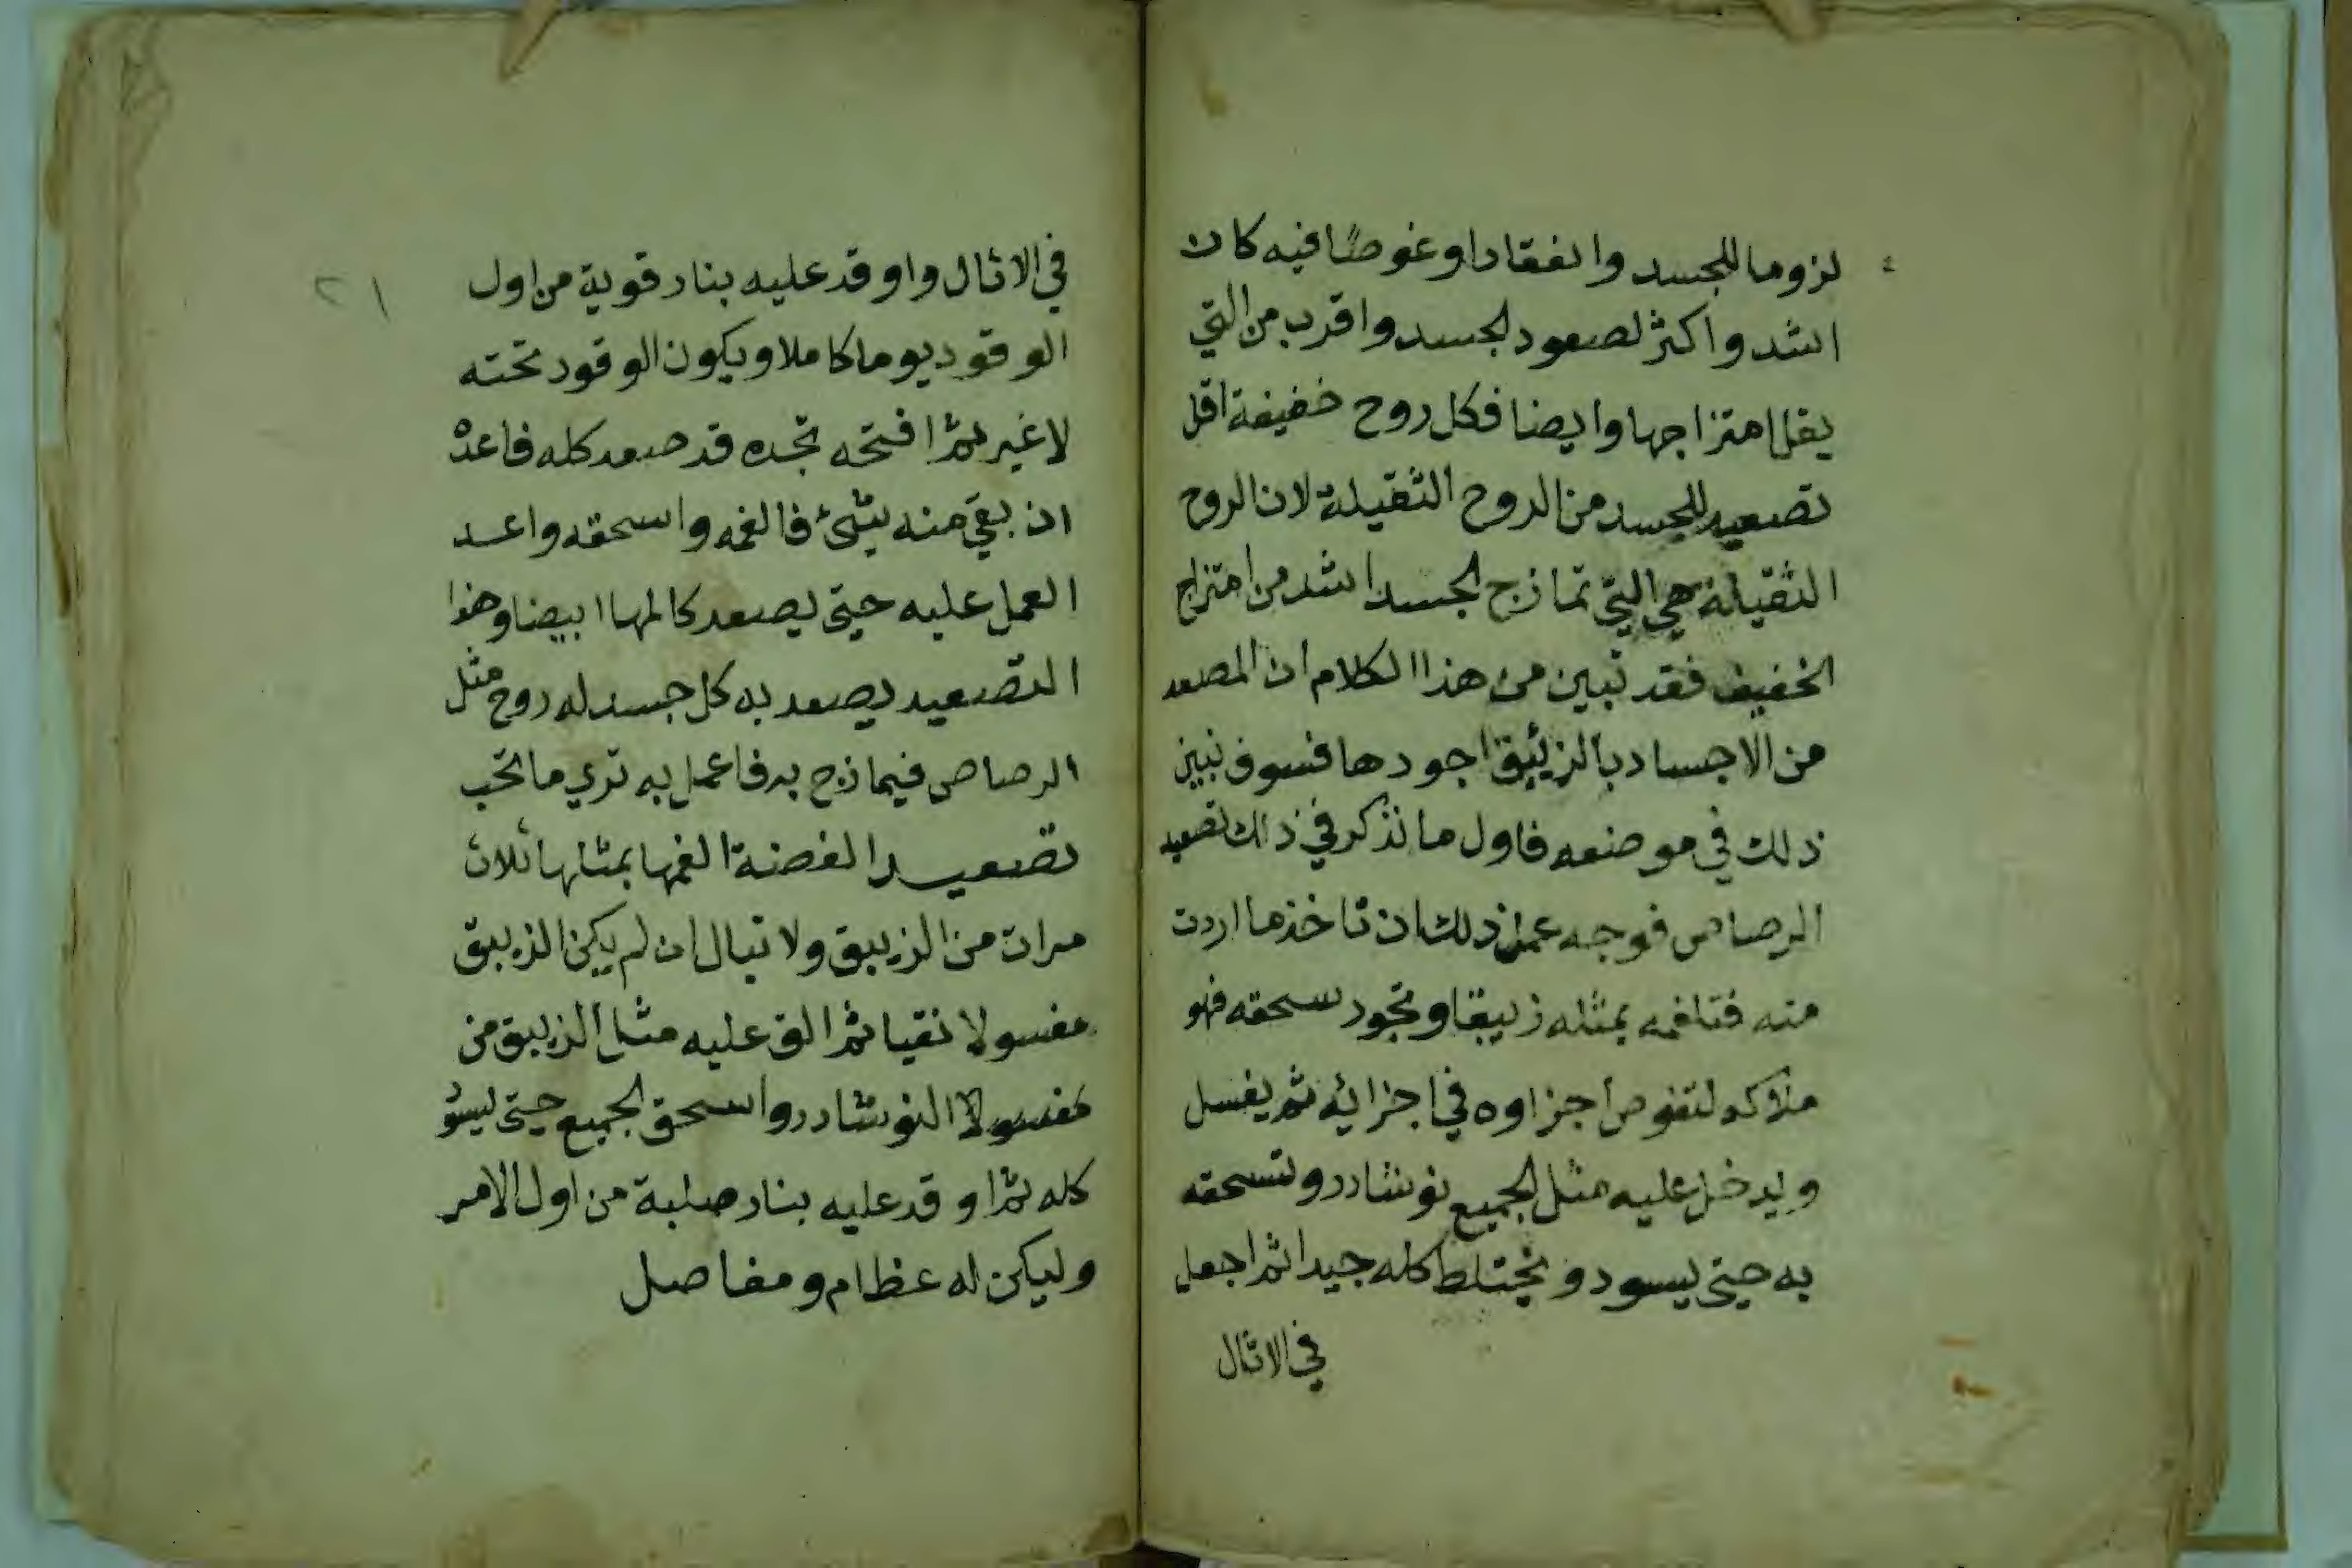 لزوما للجسد وانعقادا وغوصا فيه كان
اشد واكثر لصعود الجسد واقرب من التي
يقل امتزاجها وايضا فكل روح خفيفة اقل
تصعيد للجسد من الروح الثقيلة لان الروح
الثقيلة هي التي تمازج الجسد اشد من امتزاج
الخفيف فقد تبين من هذا الكلام ان المصعد
من الاجساد بالزئبق اجودها فسوف نبين
ذلك في موضعه فاول ما نذكر في ذلك تصعيد
الرصاص فوجه عمل ذلك ان تاخذ ما اردت
منه فتلغمه بمثله زيبقا وتجود سحقه فهو
ملاكه لتغوص اجزاوه في اجزائه ثم يغسل
ويدخل عليه مثل الجميع نوشادر وتسحقه
به حتى يسود ويختلط كله جيدا ثم اجعل
في الاثال
٢١
في الاثال واوقد عليه بنار قوية من اول
الوقود يوما كاملا ويكون الوقود تحته
لا غير ثم افتحه تجده قد صعد كله فاعده
ان بقي منه شئ فالغمه واسحقه واعد
العمل عليه حتى يصعد كالمها ابيضا وهذا
التصعيد يصعد به كل جسد له روح مثل
الرصاص فيمازج به فاعمل به تري ما تحب
تصعيد الفضة الغمها بمثلها ثلاث
مرات من الزيبق ولا تبال ان لم يكن الزيبق
مغسولا نقيا ثم الق عليه مثل الزيبق من
مغسولا النوشادر واسحق الجميع حتى يسو
كله ثم اوقد عليه بنار صلبة من اول الامر
وليكن له عظام ومفاصل